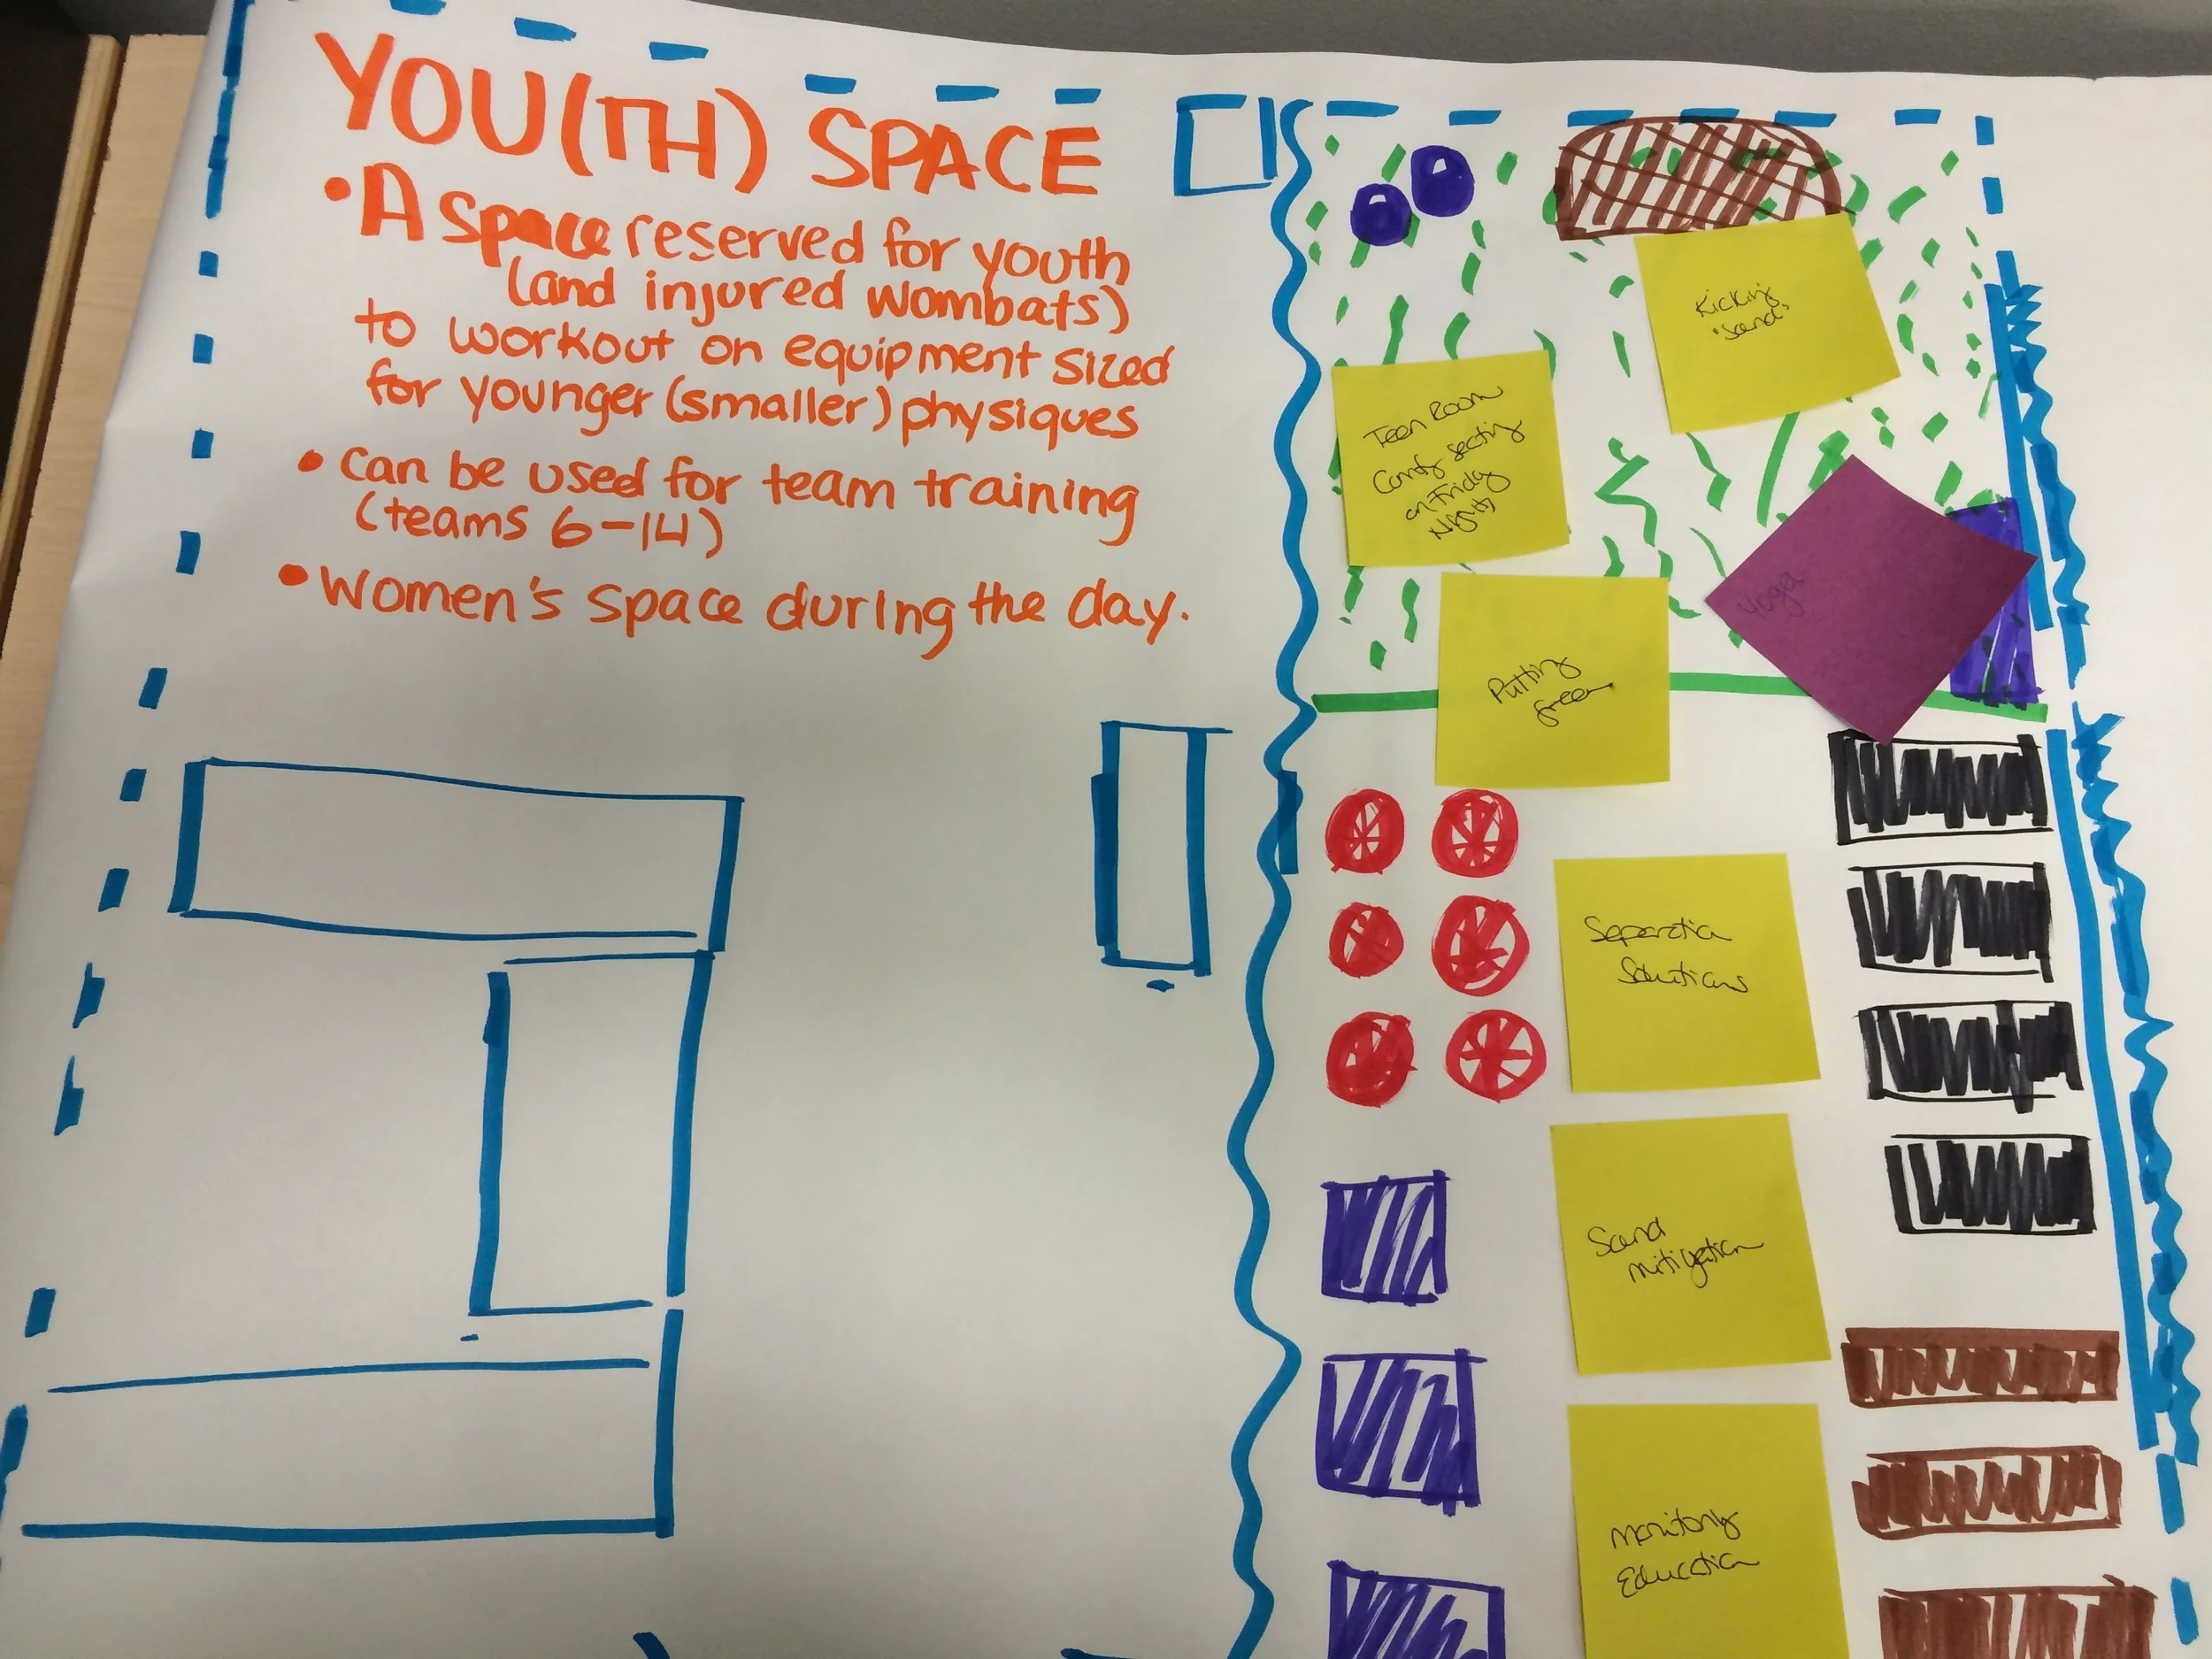 YOU(TH) SPACE
• A space reserved for youth
(and injured wombats)
to workout on equipment sized
for younger (smaller) physiques
• can be used for team training
(teams 6-14)
• Women's space during the day.
Kicking
Teen Room
Comfy seating
on Friday
Nights
Yoga
Putting
Green
Separation
Solutions
Sound
mitigation
Monitoring
Education